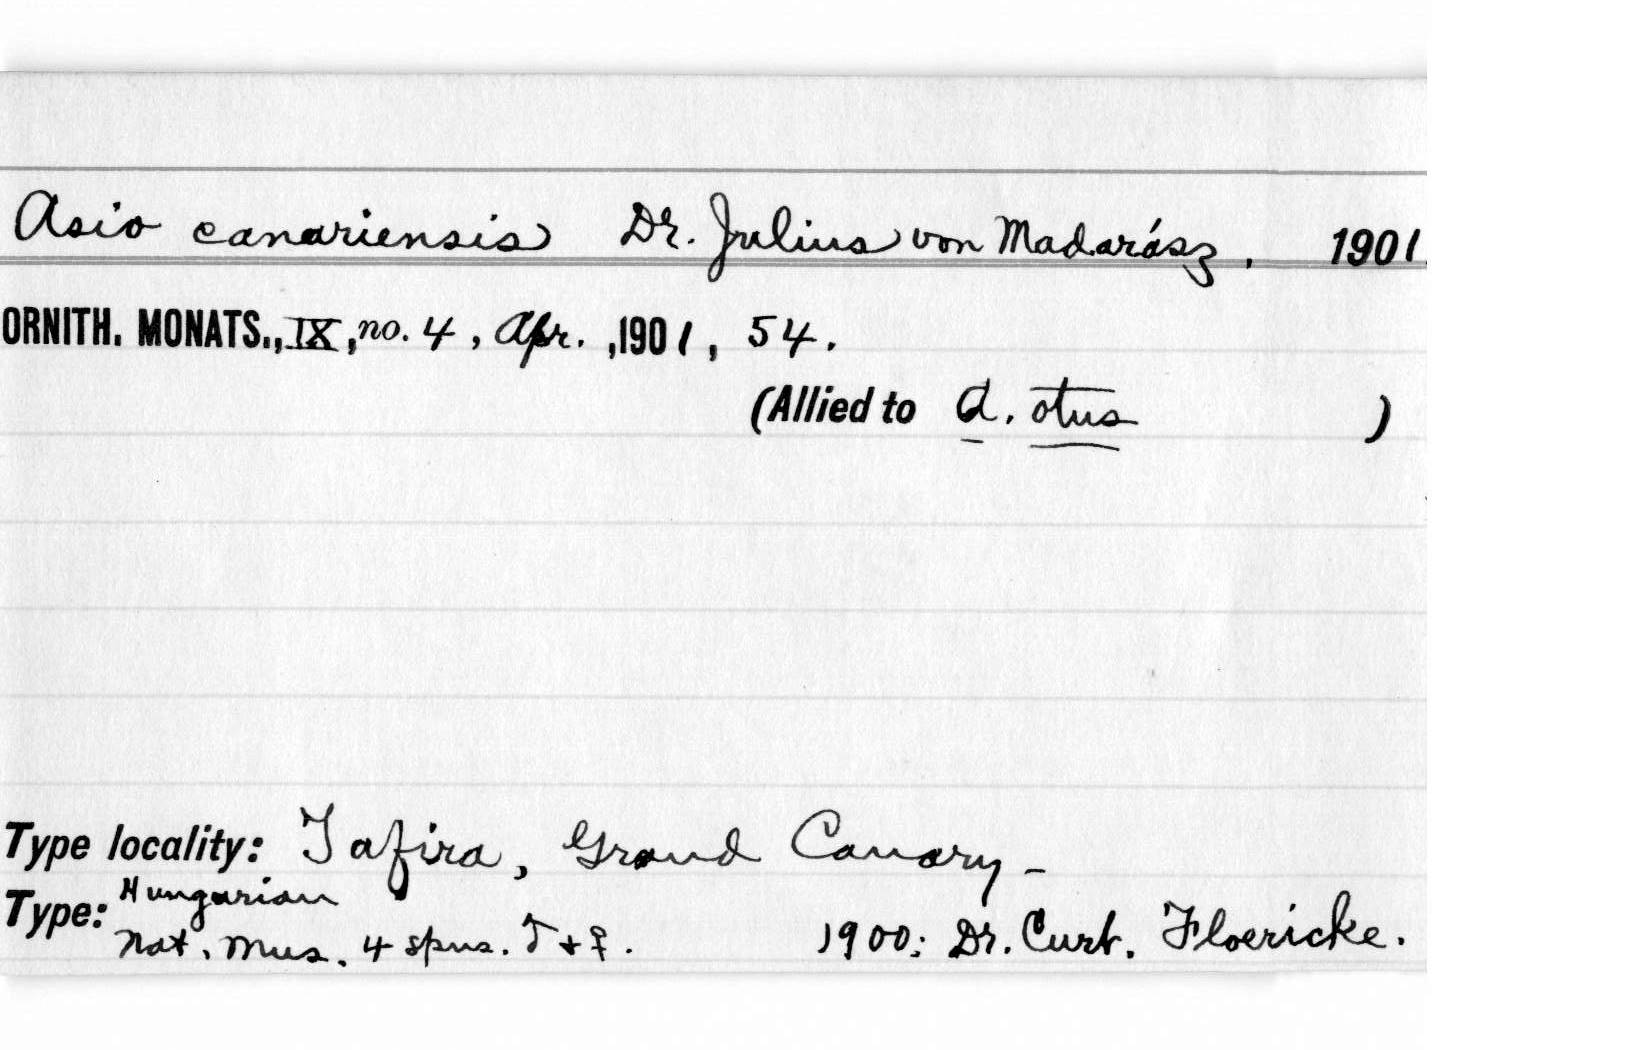 Asio canariensis Dr. Julius von Madarász. 1901.
ORNITH. MONATS., IX, no. 4, Apr. ,1901, 54.
(Allied to A. otus )
Type locality: Tafira, Grand Canary -
Type: Hungarian
Nat. Mus. 4 spns. ♂ + ♀. 1900: Dr. Curt. Floericke.